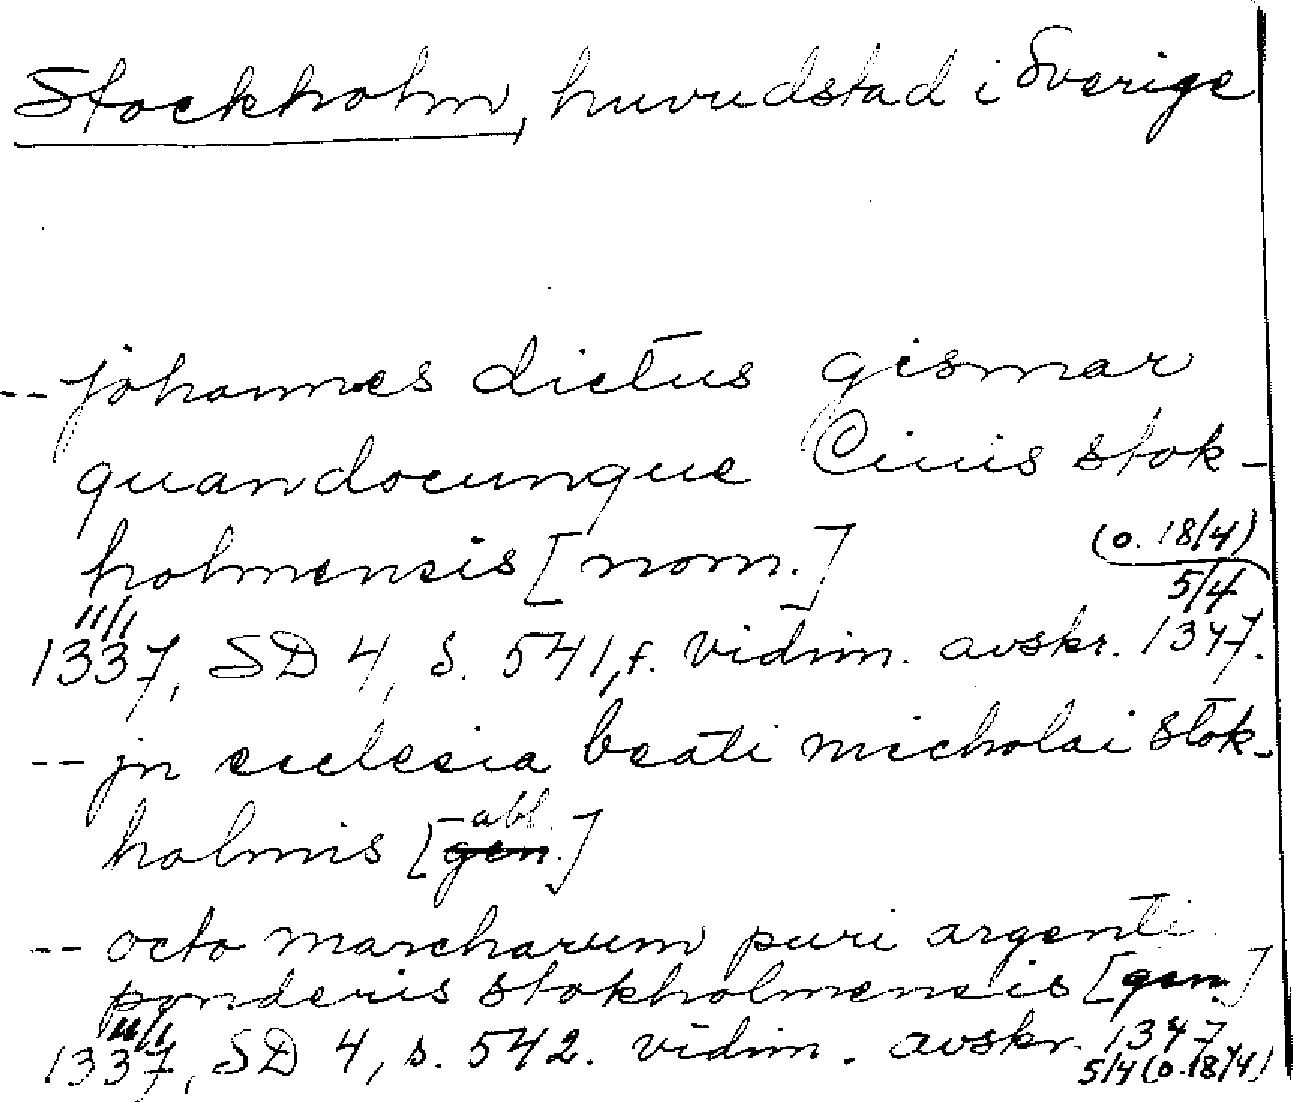 Stockholm, huvudstad i Sverige
-- johannes dictus gismar
quandocunque Ciuis stok-
holmensis [nom.]
(o. 18/4)
11/1 5/4
1337, SD 4, s. 541, f. vidim. avskr. 1347.
-- jn ecclesia beati nicholai stok-
holmis [gen. abl.]
-- octo marcharum puri argenti
ponderis stokholmensis [gen.]
11/1
1337, SD 4, s. 542. vidim. avskr. 1347
5/4 (o. 18/4)